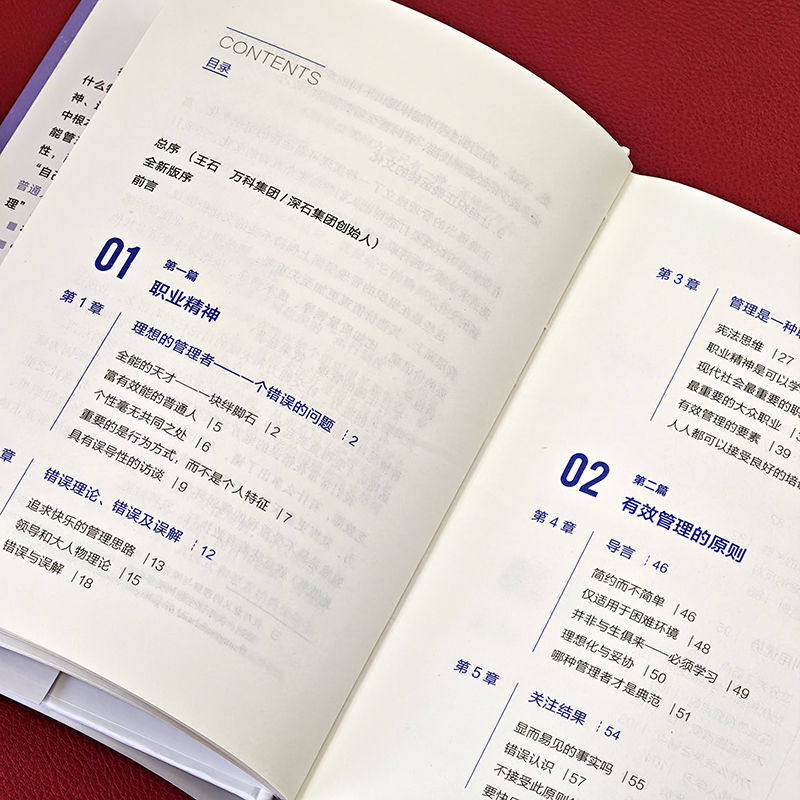 什么
神、
中根
能管
性，
“自
普通
理”
CONTENTS
目录
总序 （王石 万科集团/深石集团创始人）
全新版序
前言
01 第一篇
职业精神
第1章
理想的管理者——一个错误的问题 2
全能的天才——一块绊脚石 2
富有效能的普通人 5
个性毫无共同之处 6
重要的是行为方式，而不是个人特征 7
具有误导性的访谈 9
章
错误理论、错误及误解 12
追求快乐的管理思路 13
领导和大人物理论 15
错误与误解 18
第3章
管理是一种
宪法思维 27
职业精神是可以学
现代社会最重要的职
最重要的大众职业
有效管理的要素 39
人人都可以接受良好的培训
02 第二篇
有效管理的原则
第4章
导言 46
简约而不简单 46
仅适用于困难环境 48
并非与生俱来——必须学习 49
理想化与妥协 50
哪种管理者才是典范 51
第5章
关注结果 54
显而易见的事实吗 55
错误认识 57
不接受此原则
要快